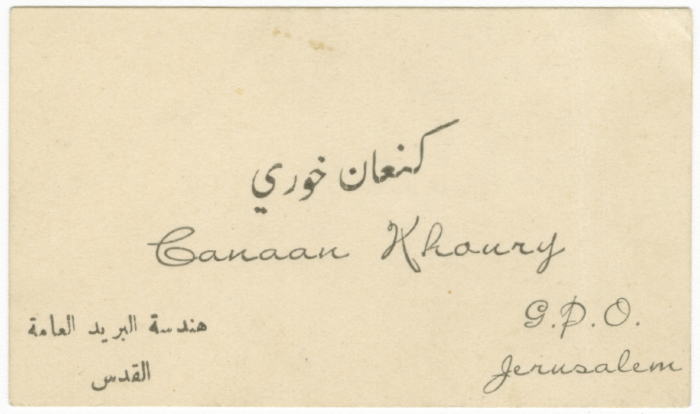 كنعان خوري
Canaan Khoury
هندسة البريد العامة
القدس
G.P.O.
Jerusalem